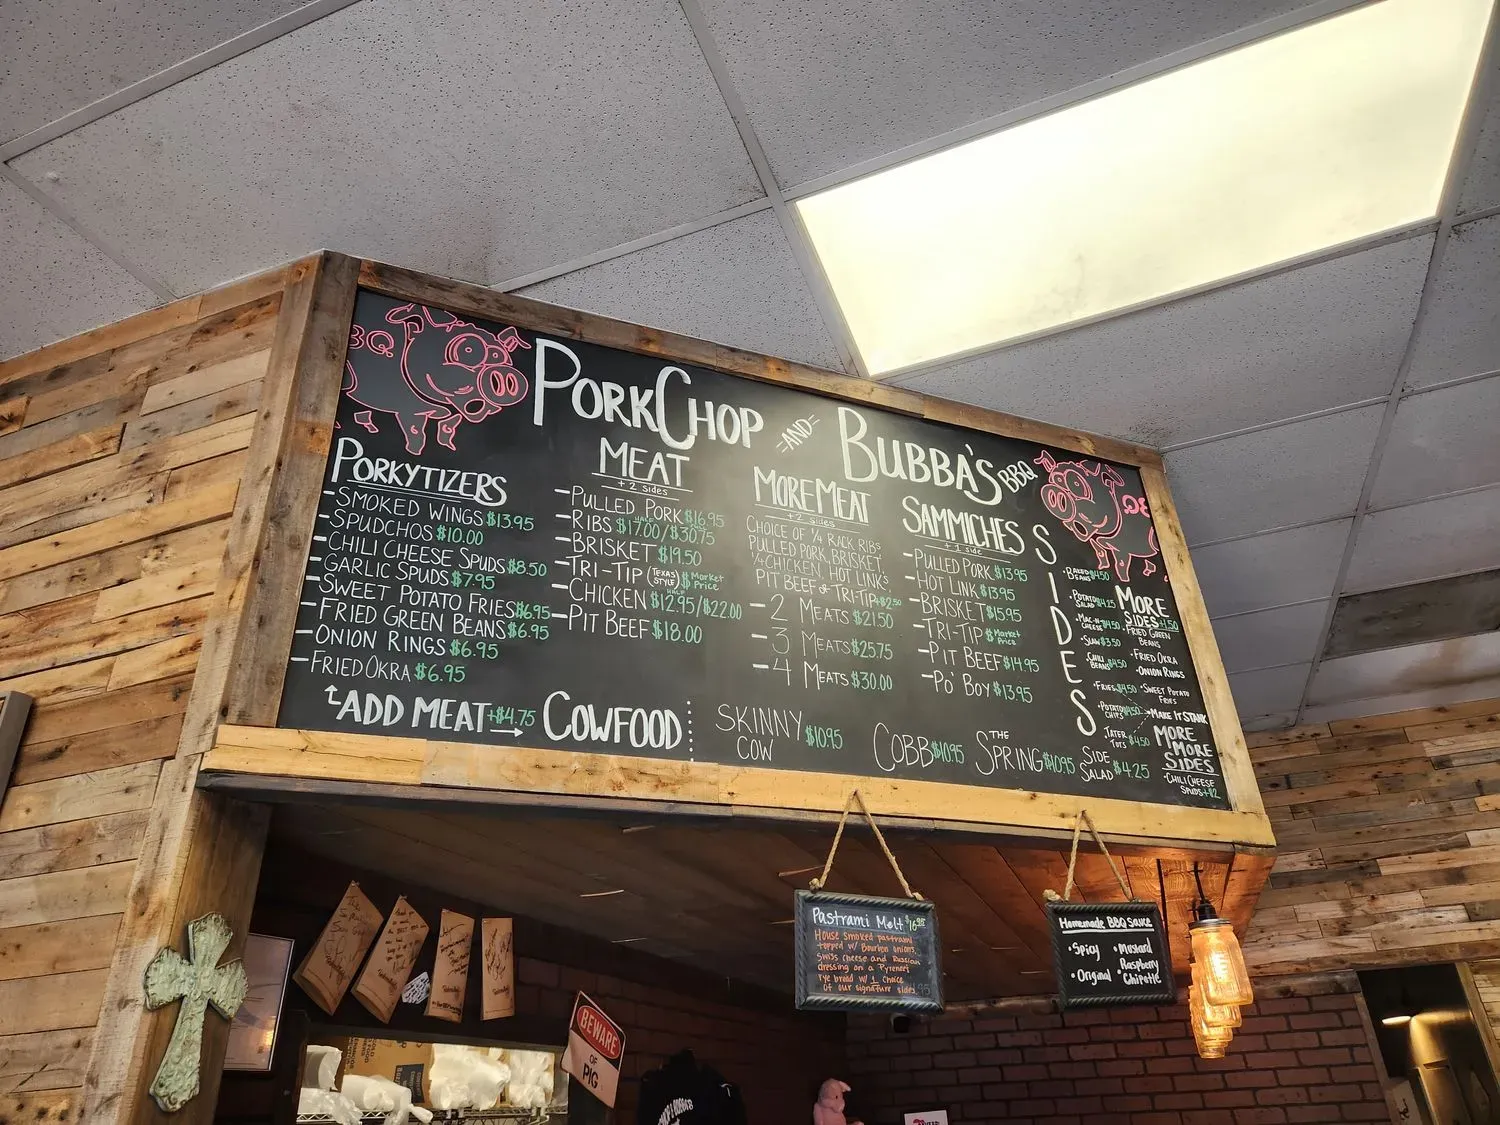 BQ
PORKCHOP -AND- BUBBA'S BBQ
PORKYTIZERS
-SMOKED WINGS $13.95
-SPUDCHOS $10.00
-CHILI CHEESE SPUDS $8.50
-GARLIC SPUDS $7.95
-SWEET POTATO FRIES $6.95
-FRIED GREEN BEANS $6.95
-ONION RINGS $6.95
-FRIED OKRA $6.95
ADD MEAT +$4.75
MEAT
+ 2 sides
-PULLED PORK $16.95
-RIBS HALF $17.00/$30.75
-BRISKET $19.50
-TRI-TIP (TEXAS STYLE) $ Market Price
-CHICKEN HALF $12.95/$22.00
-PIT BEEF $18.00
MORE MEAT
+2 sides
CHOICE OF 1/4 RACK RIBS
PULLED PORK, BRISKET,
1/4 CHICKEN, HOT LINKS,
PIT BEEF & TRI-TIP +$2.50
-2 MEATS $21.50
-3 MEATS $25.75
-4 MEATS $30.00
SAMMICHES
+ 1 side
-PULLED PORK $13.95
-HOT LINK $13.95
-BRISKET $15.95
-TRI-TIP $ Market Price
-PIT BEEF $14.95
-PO' BOY $13.95
SIDES
•BAKED BEANS $4.50
•POTATO SALAD $4.25
•MAC-N-CHEESE $4.50
•SLAW $3.50
•CHILI BEANS $4.50
•FRIES $4.50
•POTATO CHIPS $4.50
•TATER TOTS $4.50
SIDE SALAD $4.25
MORE SIDES +1.50
•FRIED GREEN BEANS
•FRIED OKRA
•ONION RINGS
•SWEET POTATO FRIES
MAKE IT STANK
MORE MORE SIDES
•CHILI CHEESE SPUDS +$2
COWFOOD
SKINNY COW $10.95
COBB $10.95
THE SPRING $10.95
Pastrami Melt $16.95
House smoked pastrami
topped w/ Bourbon onions,
Swiss cheese and Russian
dressing on a Pyrenees
rye bread w/ 1 choice
of our signature sides
Homemade BBQ Sauce
•Spicy •Mustard
Raspberry
•Original Chipotle
BEWARE
OF
PIG